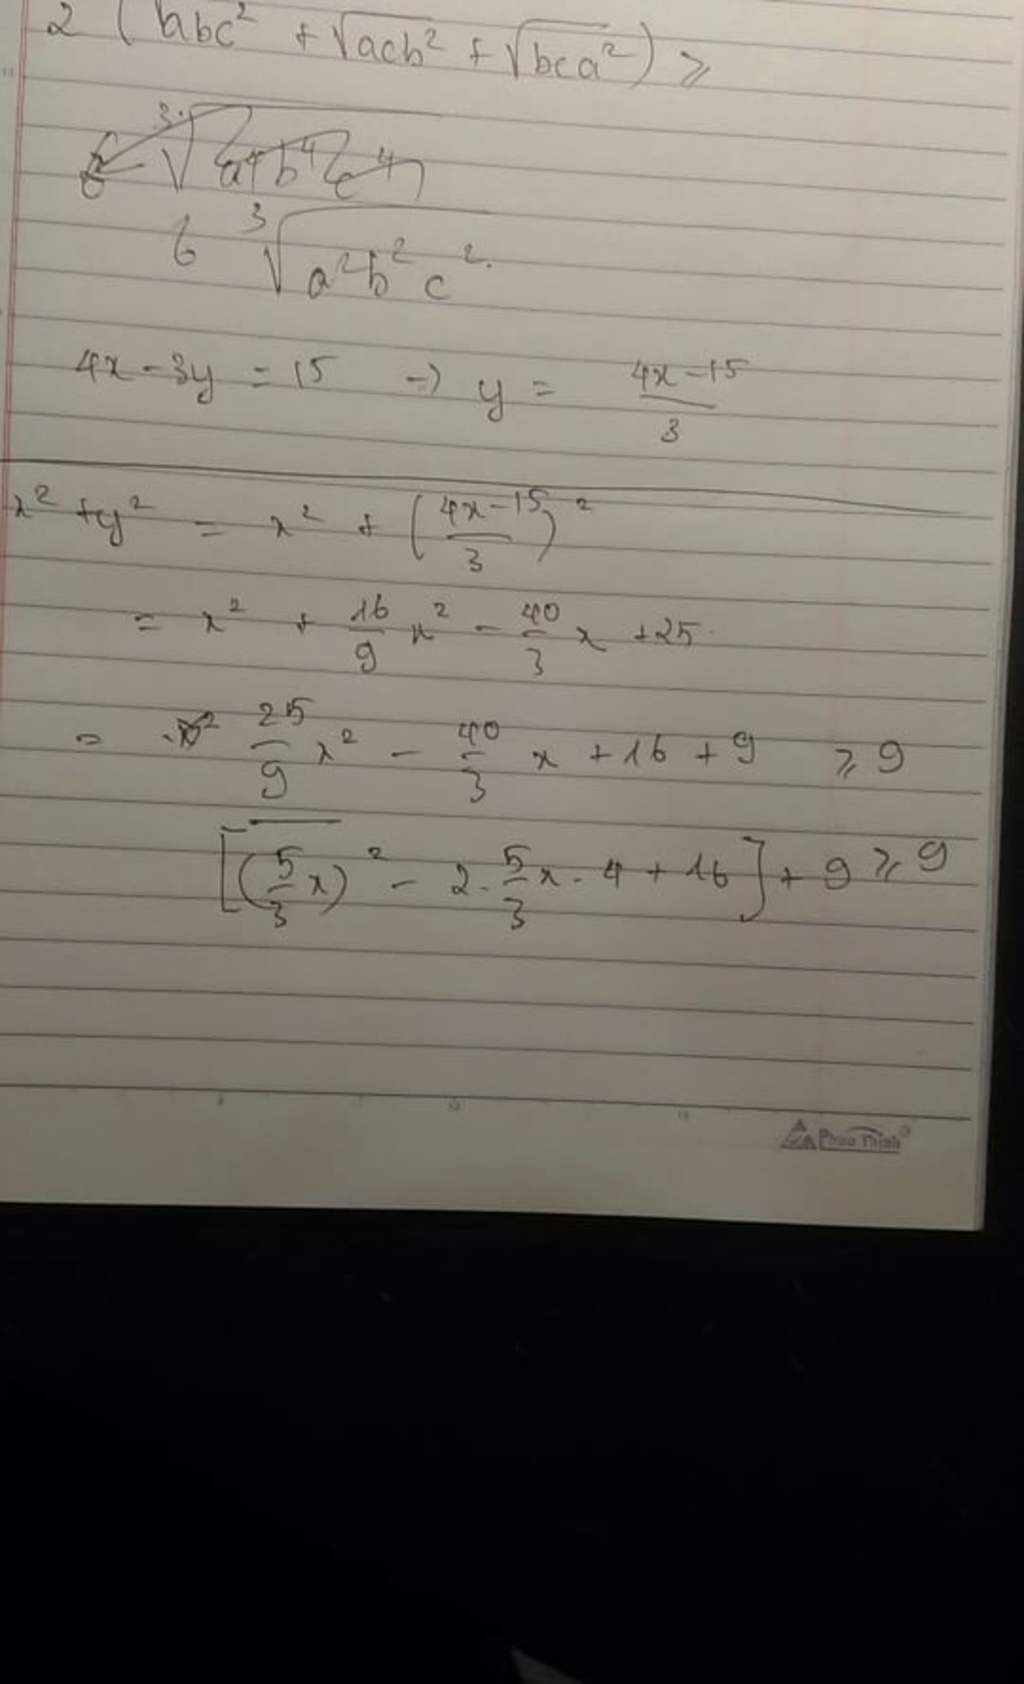 2 ( abc² + √acb² + √bca² ) ⩾
6 ∛a⁴b⁴c⁴
6 ∛a²b²c².
4x - 3y = 15 → y = (4x - 15)/3
x² + y² = x² + ((4x - 15)/3)²
= x² + 16/9 x² - 40/3 x + 25.
= x² 25/9 x² - 40/3 x + 16 + 9 ⩾ 9
[(5/3 x)² - 2. 5/3 x. 4 + 16] + 9 ⩾ 9